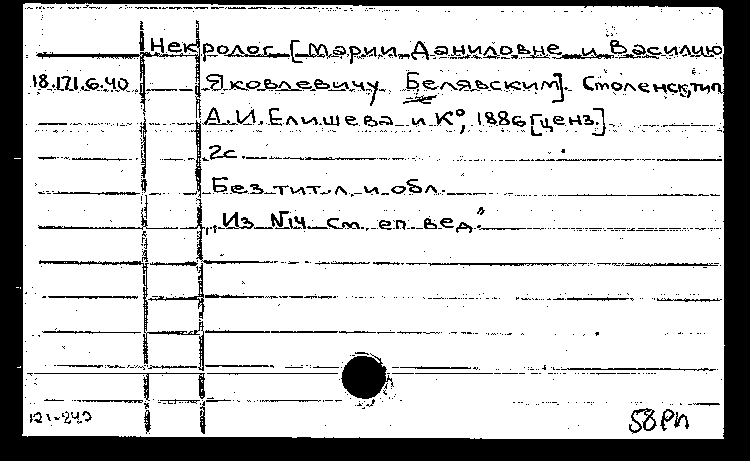 Некролог [Марии Даниловне и Василию
18.171.6.40 Яковлевичу Белявским]. Смоленск, тип.
А.И. Елишева и К°, 1886 [ценз.].
2с.
Без тит. л. и обл.
„Из №14 См. еп. вед."
121-242 58РП